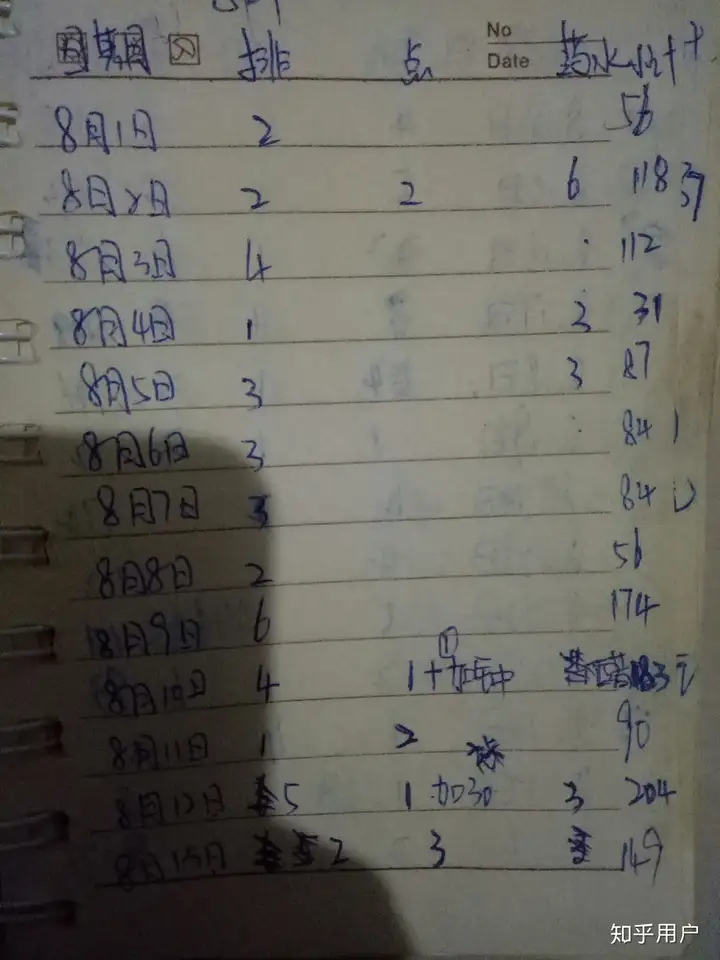 No
日期 排 点 药水 小计
Date
8月1日 2 56
8月2日 2 2 6 118 37
8月3日 4 112
8月4日 1 3 31
8月5日 3 3 87
8月6日 3 84
8月7日 3 84
8月8日 2 56
8月9日 6 174
①
8月10日 4 1+ 183元
8月11日 1 2 90
8月12日 5 1 加30 3 204
8月13日 2 3 149
知乎用户